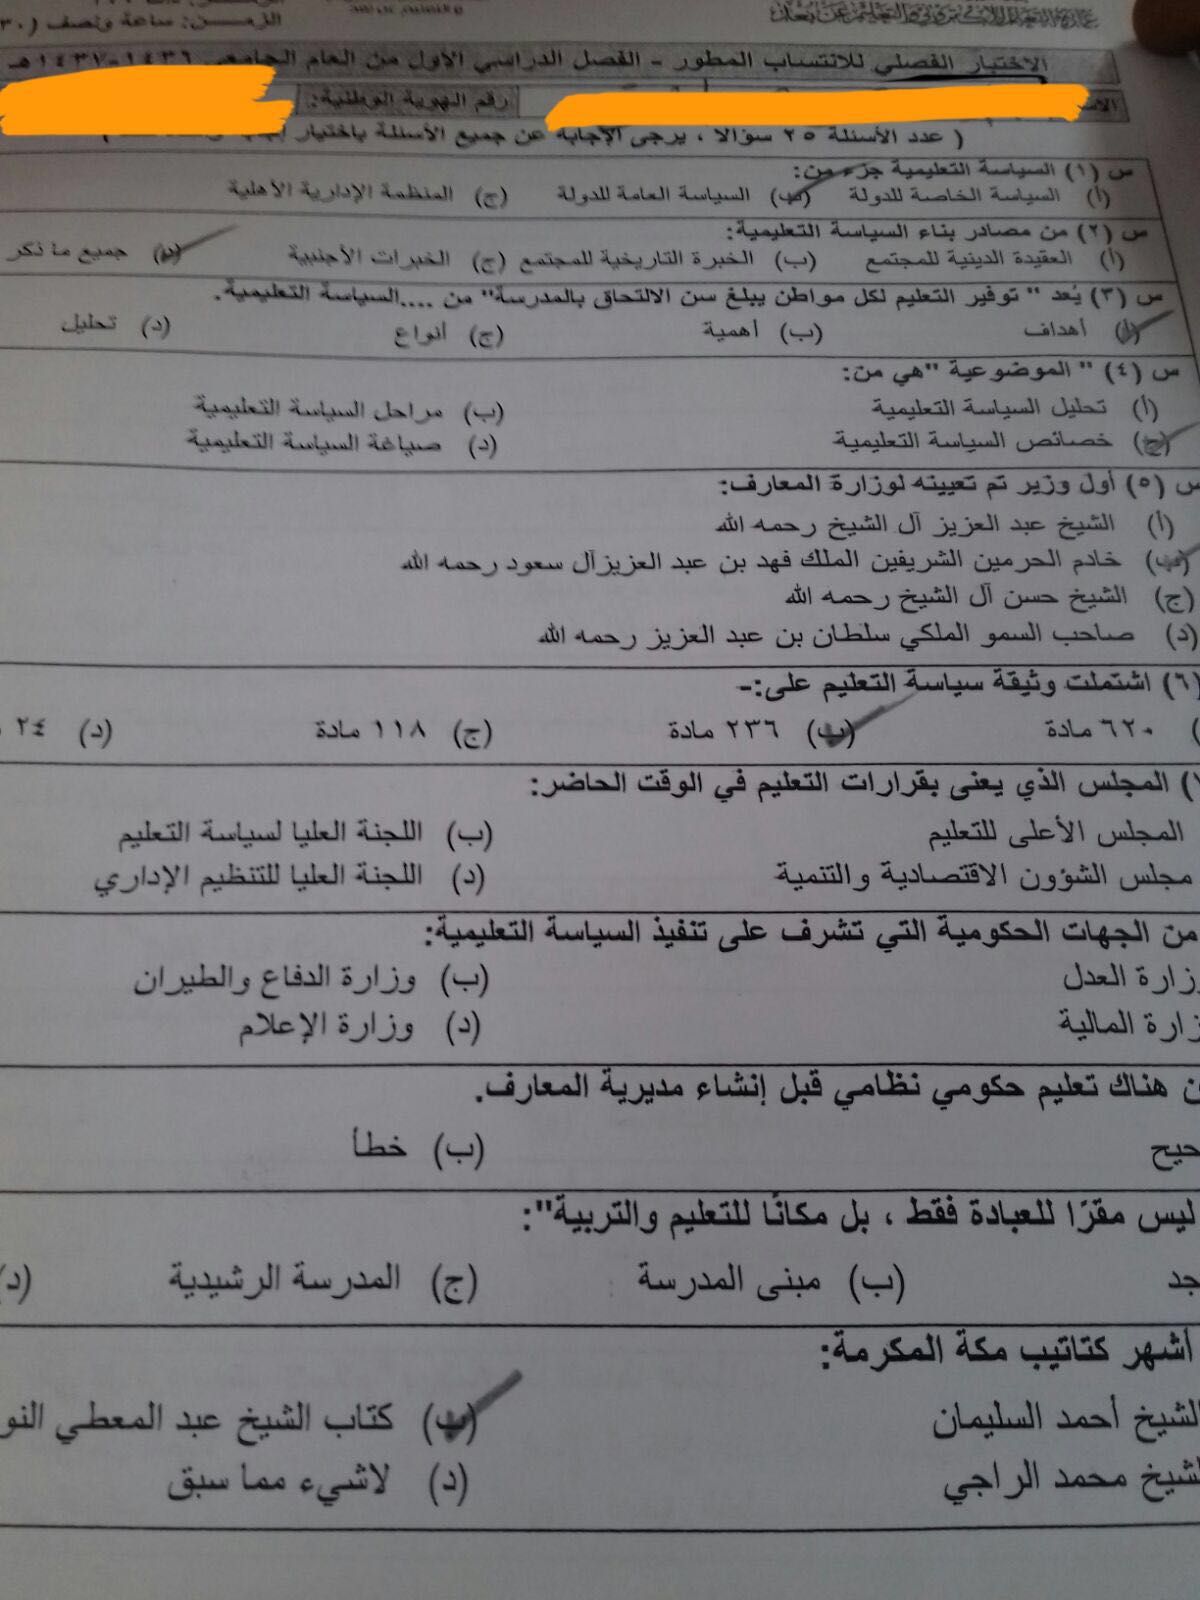 الزمن: ساعة ونصف
عمادة التعلم الإلكتروني والتعليم عن بعد
الاختبار الفصلي للانتساب المطور - الفصل الدراسي الأول من العام الجامعي ١٤٣٦-١٤٣٧هـ
رقم الهوية الوطنية:
( عدد الأسئلة ٢٥ سؤالا ، يرجى الإجابة عن جميع الأسئلة باختيار
س (١) السياسة التعليمية جزء من:
(أ) السياسة الخاصة للدولة (ب) السياسة العامة للدولة (ج) المنظمة الإدارية الأهلية
س (٢) من مصادر بناء السياسة التعليمية:
(أ) العقيدة الدينية للمجتمع (ب) الخبرة التاريخية للمجتمع (ج) الخبرات الأجنبية (د) جميع ما ذكر
س (٣) يُعد " توفير التعليم لكل مواطن يبلغ سن الالتحاق بالمدرسة" من ....السياسة التعليمية.
(أ) أهداف (ب) أهمية (ج) أنواع (د) تحليل
س (٤) " الموضوعية "هي من:
(أ) تحليل السياسة التعليمية (ب) مراحل السياسة التعليمية
(ج) خصائص السياسة التعليمية (د) صياغة السياسة التعليمية
س (٥) أول وزير تم تعيينه لوزارة المعارف:
(أ) الشيخ عبد العزيز آل الشيخ رحمه الله
(ب) خادم الحرمين الشريفين الملك فهد بن عبد العزيزآل سعود رحمه الله
(ج) الشيخ حسن آل الشيخ رحمه الله
(د) صاحب السمو الملكي سلطان بن عبد العزيز رحمه الله
(٦) اشتملت وثيقة سياسة التعليم على:-
) ٦٢٠ مادة (ب) ٢٣٦ مادة (ج) ١١٨ مادة (د) ٢٤
) المجلس الذي يعنى بقرارات التعليم في الوقت الحاضر:
المجلس الأعلى للتعليم (ب) اللجنة العليا لسياسة التعليم
مجلس الشؤون الاقتصادية والتنمية (د) اللجنة العليا للتنظيم الإداري
من الجهات الحكومية التي تشرف على تنفيذ السياسة التعليمية:
وزارة العدل (ب) وزارة الدفاع والطيران
زارة المالية (د) وزارة الإعلام
ن هناك تعليم حكومي نظامي قبل إنشاء مديرية المعارف.
حيح (ب) خطأ
ليس مقرًا للعبادة فقط ، بل مكانًا للتعليم والتربية":
جد (ب) مبنى المدرسة (ج) المدرسة الرشيدية (د)
أشهر كتاتيب مكة المكرمة:
الشيخ أحمد السليمان (ب) كتاب الشيخ عبد المعطي النو
لشيخ محمد الراجي (د) لاشيء مما سبق